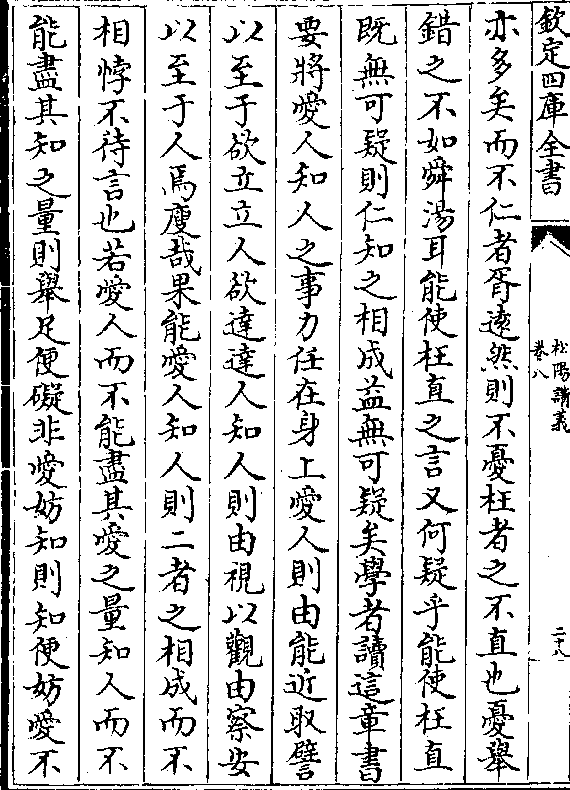 欽定四庫全書
松陽講義
卷八
二十八
亦多矣而不仁者胥遠然則不憂枉者之不直也憂舉
錯之不如舜湯耳能使枉直之言又何疑乎能使枉直
既無可疑則仁知之相成益無可疑矣學者讀這章書
要將愛人知人之事力任在身上愛人則由能近取譬
以至于欲立立人欲達達人知人則由視以觀由察安
以至于人焉廋哉果能愛人知人則二者之相成而不
相悖不待言也若愛人而不能盡其愛之量知人而不
能盡其知之量則舉足便礙非愛妨知則知便妨愛不